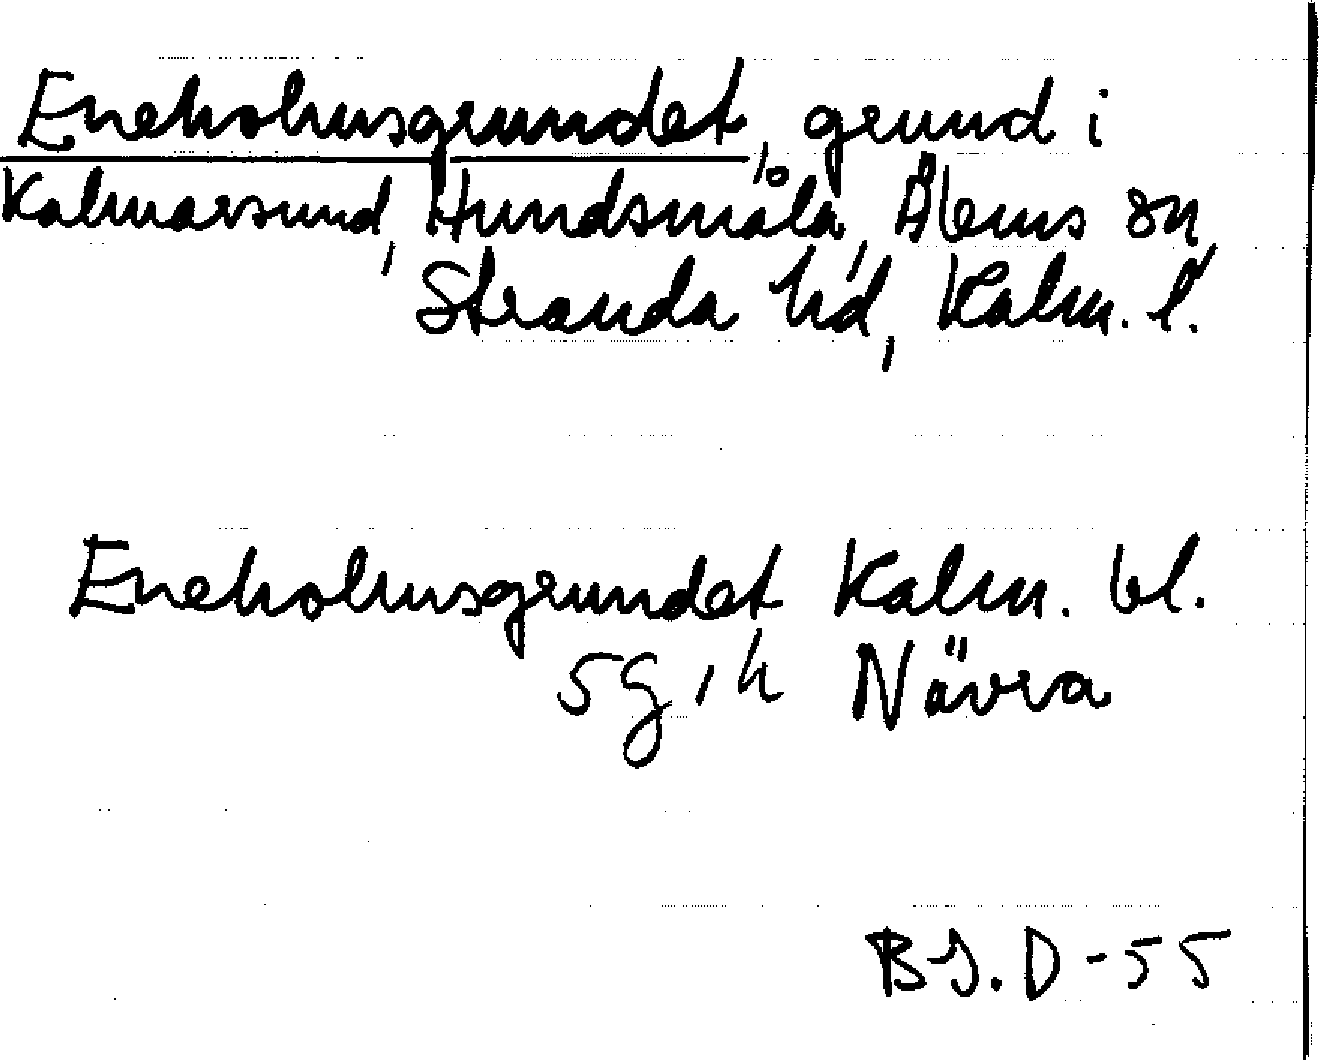 Eneholmsgrundet, grund i
Kalmarsund, Hundsmåla, Ålems sn,
Stranda hd, Kalm. l.
Eneholmsgrundet Kalm. bl.
5g, h Nävra
BJ.D-55